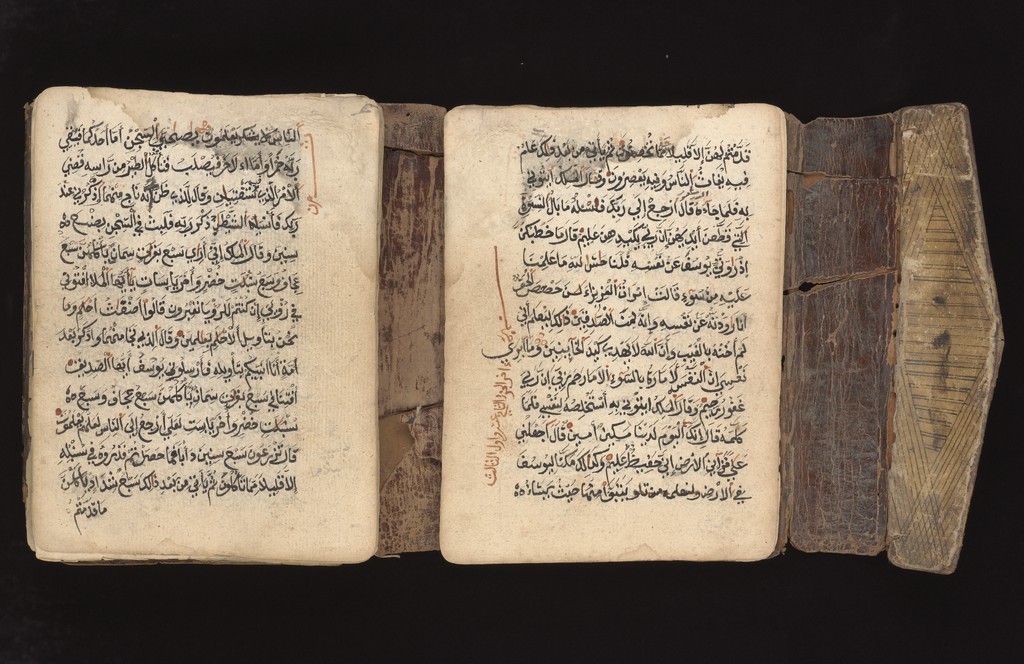 الناس لا يعلمون يصحبي السجن اما احدكما فيسقي
ربه خمرا واما الاخر فيصلب فتاكل الطير من راسه قضي
الامر الذي فيه تستفتيان وقال للذي ظن انه ناج منهما اذكرني عند
ربك فانسيه الشيطن ذكر ربه فلبث في السجن بضع
سنين وقال الملك اني اري سبع بقرات سمان ياكلهن سبع
عجاف وسبع سنبلت خضر واخر يابسات يايها الملا افتوني
في رؤيي ان كنتم للرؤيا تعبرون قالوا اضغث احلم وما
نحن بتاويل الاحلم بعلمين وقال الذي نجا منهما وادكر بعد
امة انا انبيكم بتاويله فارسلون يوسف ايها الصديق
افتنا في سبع بقرت سمان ياكلهن سبع عجاف وسبع
سنبلت خضر واخر يابست لعلي ارجع الى الناس لعلهم يعلمون
قال تزرعون سبع سنين دابا فما حصدتم فذروه في سنبله
الا قليلا مما تاكلون ثم ياتي من بعد ذلك سبع شداد ياكلن
ما قدمتم
قدمتم لهن الا قليلا مما تحصنون ثم ياتي من بعد ذلك عام
فيه يغاث الناس وفيه يعصرون وقال الملك ايتوني
به فلما جاءه قال ارجع الى ربك فاسئله ما بال النسوة
التي قطعن ايديهن ان ربي بكيدهن عليم قال ما خطبكن
اذ راودتن يوسف عن نفسه قلن حاش لله ما علمنا
عليه من سوء قالت امرات العزيز الئن حصحص الحق
انا راودته عن نفسه وانه لمن الصدقين ذلك ليعلم اني
لم اخنه بالغيب وان الله لا يهدي كيد الخاينين وما ابري
نفسي ان النفس لامارة بالسوء الا ما رحم ربي ان ربي
غفور رحيم وقال الملك ايتوني به استخلصه لنفسي فلما
كلمه قال انك اليوم لدينا مكين امين قال اجعلني
على خزاين الارض اني حفيظ عليم وكذلك مكنا ليوسف
في الارض يتبوا منها حيث يشاء